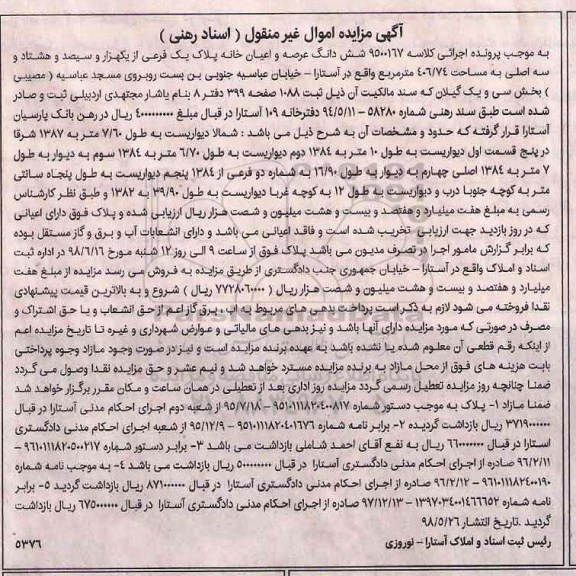 آگهی مزایده اموال غیر منقول ( اسناد رهنی )
به موجب پرونده اجرائی کلاسه ۹۵۰۰۱۶۷ شش دانگ عرصه و اعیان خانه پلاک یک فرعی از یکهزار و سیصد و هشتاد و
سه اصلی به مساحت ۴۰۶/۷۴ مترمربع واقع در آستارا – خیابان عباسیه جنوبی بن بست روبروی مسجد عباسیه ( مصیبی
) بخش سی و یک گیلان که سند مالکیت آن ذیل ثبت ۱۰۸۸ صفحه ۳۹۹ دفتر ۸ بنام یاشار مجتهدی اردبیلی ثبت و صادر
شده است طبق سند رهنی شماره ۵۸۲۸۰ – ۹۴/۵/۱۱ دفترخانه ۱۰۹ آستارا در قبال مبلغ ۴۰۰۰۰۰۰۰۰۰ ریال در رهن بانک پارسیان
آستارا قرار گرفته که حدود و مشخصات آن به شرح ذیل می باشد : شمالا دیواریست به طول ۷/۶۰ متر به ۱۳۸۷ شرقا
در پنج قسمت اول دیواریست به طول ۱۰ متر به ۱۳۸۴ دوم دیواریست به طول ۶/۷۰ متر به ۱۳۸۴ سوم به دیوار به طول
۷ متر به ۱۳۸۴ اصلی چهارم به دیوار به طول ۱۶/۹۰ به شماره دو فرعی از ۱۳۸۴ پنجم دیواریست به طول پنجاه سانتی
متر به کوچه جنوبا درب و دیواریست به طول ۱۲ به کوچه غربا دیواریست به طول ۳۹/۹۰ به ۱۳۸۲ و طبق نظر کارشناس
رسمی به مبلغ هفت میلیارد و هفتصد و بیست و هشت میلیون و شصت هزار ریال ارزیابی شده و پلاک فوق دارای اعیانی
که در روز بازدید جهت ارزیابی تخریب شده است و فاقد اعیانی می باشد و دارای انشعابات آب و برق و گاز مستقل بوده
که برابر گزارش مامور اجرا در تصرف مدیون می باشد پلاک فوق از ساعت ۹ الی روز ۱۲ شنبه مورخ ۹۸/۶/۱۶ در اداره ثبت
اسناد و املاک واقع در آستارا – خیابان جمهوری جنب دادگستری از طریق مزایده به فروش می رسد مزایده از مبلغ هفت
میلیارد و هفتصد و بیست و هشت میلیون و شصت هزار ریال ( ۷۷۲۸۰۶۰۰۰۰ ریال ) شروع و به بالاترین قیمت پیشنهادی
نقدا فروخته می شود لازم به ذکر است پرداخت بدهی های مربوط به آب ، برق گاز اعم از حق انشعاب و یا حق اشتراک و
مصرف در صورتی که مورد مزایده دارای آنها باشد و نیز بدهی های مالیاتی و عوارض شهرداری و غیره تا تاریخ مزایده اعم
از اینکه رقم قطعی آن معلوم شده یا نشده باشد به عهده برنده مزایده است و نیز در صورت وجود مازاد وجوه پرداختی
بابت هزینه های فوق از محل مازاد به برنده مزایده مسترد خواهد شد و نیم عشر و حق مزایده نقدا وصول می گردد
ضمنا چنانچه روز مزایده تعطیل رسمی گردد مزایده روز اداری بعد از تعطیلی در همان ساعت و مکان مقرر برگزار خواهد شد
ضمنا مازاد ۱- پلاک به موجب دستور شماره ۹۵۱۰۱۱۱۸۲۰۴۰۰۸۱۷ – ۹۵/۷/۱۸ از شعبه دوم اجرای احکام مدنی آستارا در قبال
۳۷۱۹۰۰۰۰۰۰ ریال بازداشت گردیده ۲- برابر نامه شماره ۹۵۱۰۱۱۱۸۲۰۴۰۱۶۷۶ – ۹۵/۱۲/۹ از شعبه اجرای احکام مدنی دادگستری
استارا در قبال ۶۶۰۰۰۰۰۰۰ ریال به نفع آقای احمد شاملی بازداشت می باشد ۳- برابر دستور شماره ۹۶۱۰۱۱۱۸۲۰۵۰۰۲۱۷ –
۹۶/۲/۱۱ صادره از اجرای احکام مدنی دادگستری آستارا در قبال ۵۰۰۰۰۰۰۰۰ ریال بازداشت می باشد ۴- به موجب نامه شماره
۹۶۱۰۱۱۱۸۲۴۰۰۱۹۰ – ۹۶/۲/۱۲ صادره از اجرای احکام مدنی دادگستری آستارا در قبال ۸۷۱۰۰۰۰۰۰ ریال بازداشت گردید ۵- برابر
نامه شماره ۱۳۹۷۰۳۴۰۰۱۴۶۶۶۵۲ – ۹۷/۱۲/۱۳ صادره از اجرای احکام مدنی دادگستری آستارا در قبال ۶۷۵۰۰۰۰۰۰ ریال بازداشت
گردید .تاریخ انتشار ۹۸/۵/۲۶
رئیس ثبت اسناد و املاک آستارا – نوروزی
۵۳۷۶